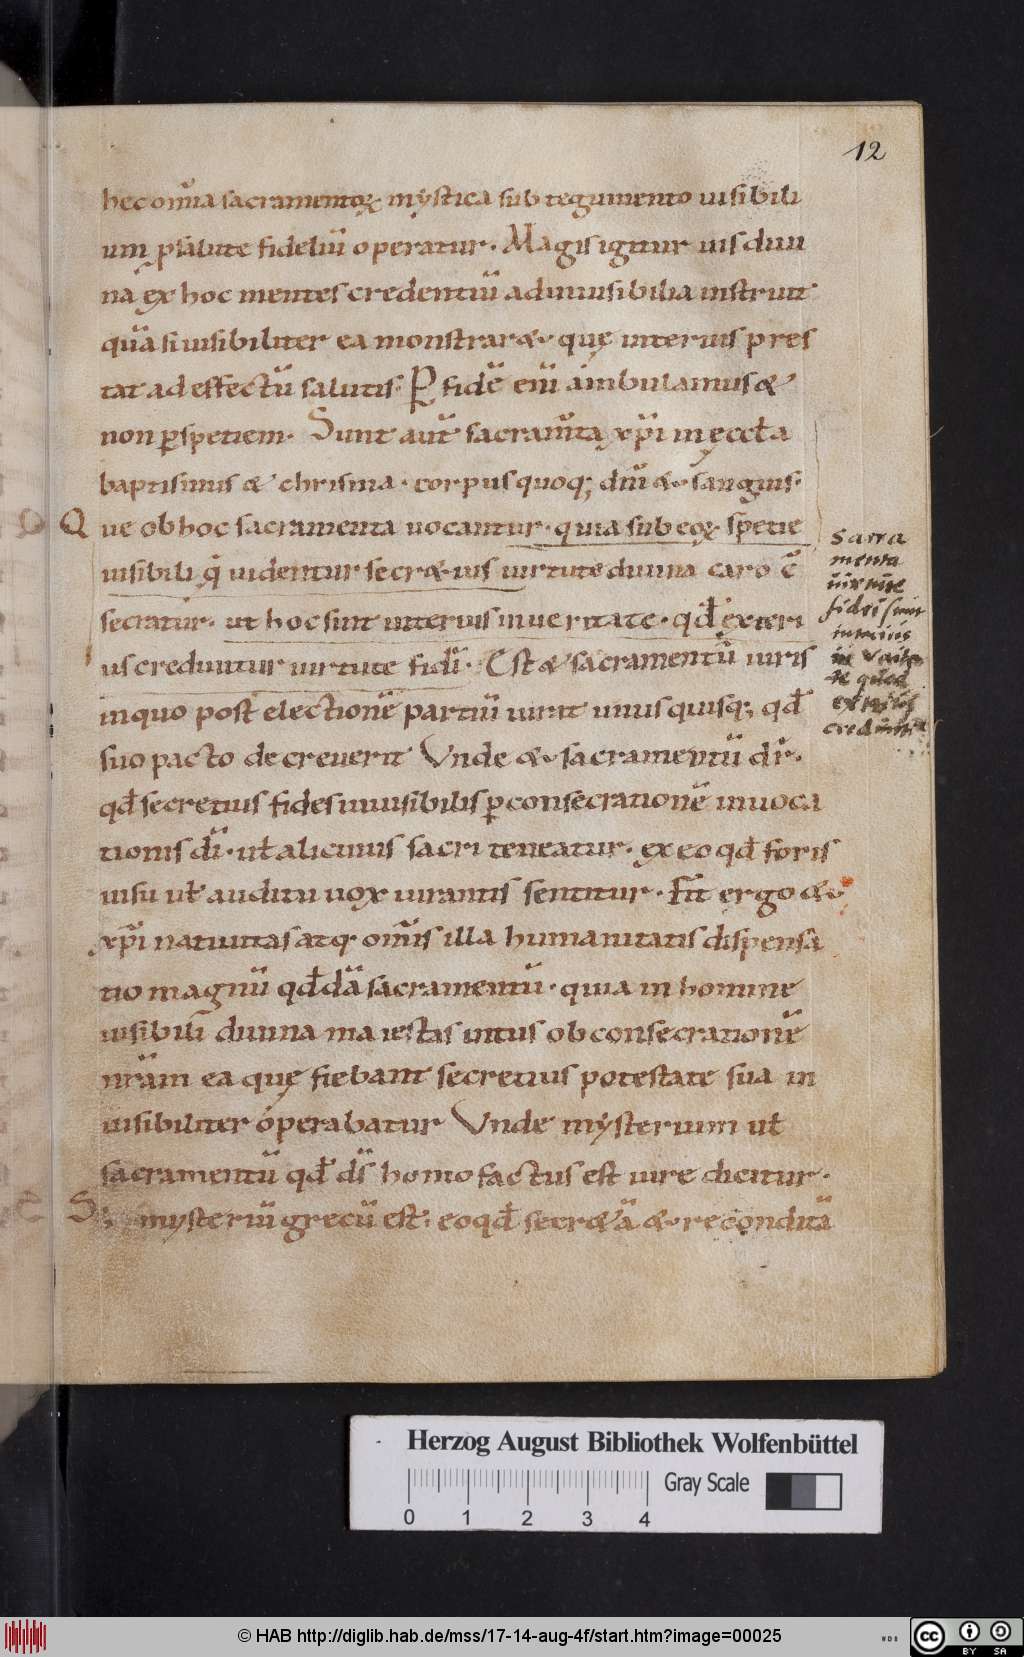 12
hec om̅ia sacramentoꝝ mystica sub tegumento uisibili
um ꝓsalute fideliu̅ operatur. Magis igitur uis diui
na ex hoc mentes credentiu̅ adinuisibilia instruit
qua̅ si uisibiliter ea monstraret. que̜ interius pres
tat ad effectu̅ salutis. P̲ fide̅ eni̅ ambulamus &
non ꝑspetiem. Sunt aut̅ sacram̅ta xp̅i in e̜ccƚa
baptismus & chrisma. corpus quoq; dn̅i & sanguis.
Que ob hoc sacramenta uocantur. quia sub eoꝝ spetie
uisibili q̇ uidentur secr&ius uirtute diuina caro c̅
secratur. ut hoc sint interius inueritate. qd̅ exteri
us creduntur uirtute fidi̅. Est & sacramentu̅ iuris
inquo post electione̅ partiu̅ iurat unus quisq; qd̅
suo pacto decreuerit Vnde & sacramentu̅ dr̅.
qd̅ secretius fides inuisibilis ꝑ consecratione̅ inuoca
tionis di̅. uƚ alicuius sacri teneatur. ex eo qd̅ foris
uisu uƚ auditu uox iurantis sentitur. Fit ergo &
xp̅i natiuitas atq. om̅is illa humanitatis dispensa
tio magnu̅ qd̅da̅ sacramentu̅. quia in homine
uisibili̅ diuina maiestas intus ob consecratione̅
nr̅am ea que̜ fiebant secretius potestate sua in
uisibiliter operabatur Vnde mysterium uƚ
sacramentu̅ qd̅ ds̅ homo factus est iure dicitur.
S; mysteriu̅ grecu̅ est. eo qd̅ secr&a̅ & recondita̅
Sacra
menta
uirtute
fidei sunt
interius
in
quod
exterius
Herzog August Bibliothek Wolfenbüttel
Gray Scale
0 1 2 3 4
© HAB http://diglib.hab.de/mss/17-14-aug-4f/start.htm?image=00025
WDB
cc BY SA